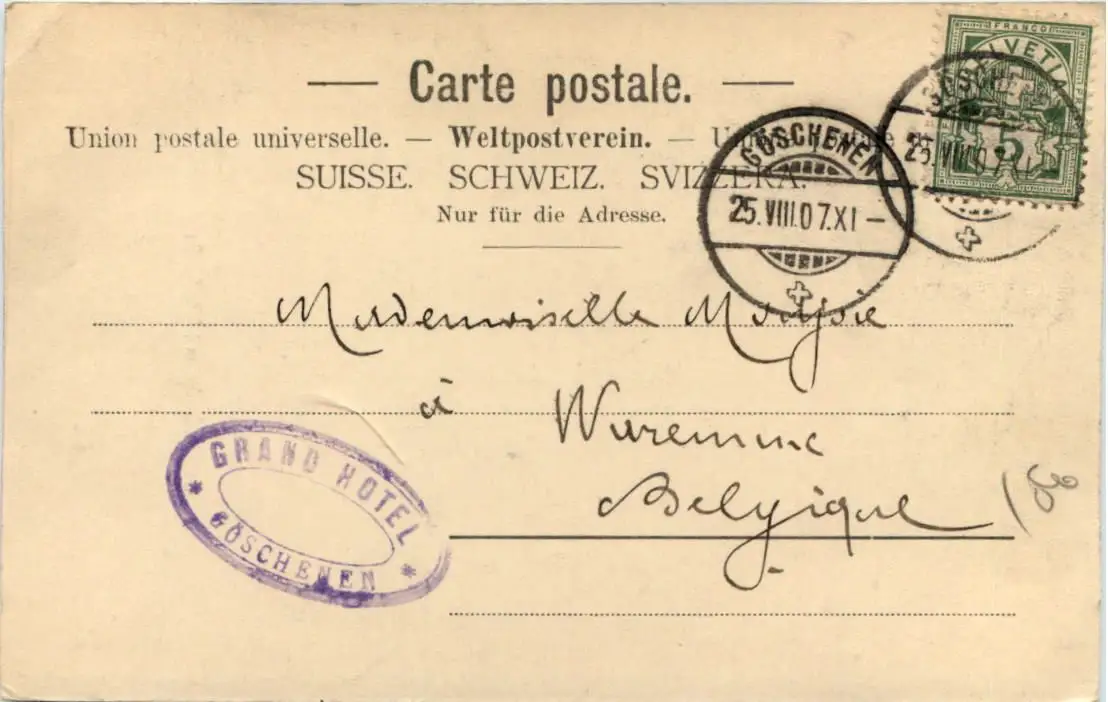 FRANCO
HELVETIA
5
— Carte postale. —
Union postale universelle. — Weltpostverein. — Un
SUISSE. SCHWEIZ. SVIZZERA.
Nur für die Adresse.
GÖSCHENEN
25.VIII.07.XI–
GÖSCHENEN
25.VIII.07
Mademoiselle
à Waremme
Belgique
GRAND HOTEL
* GÖSCHENEN *